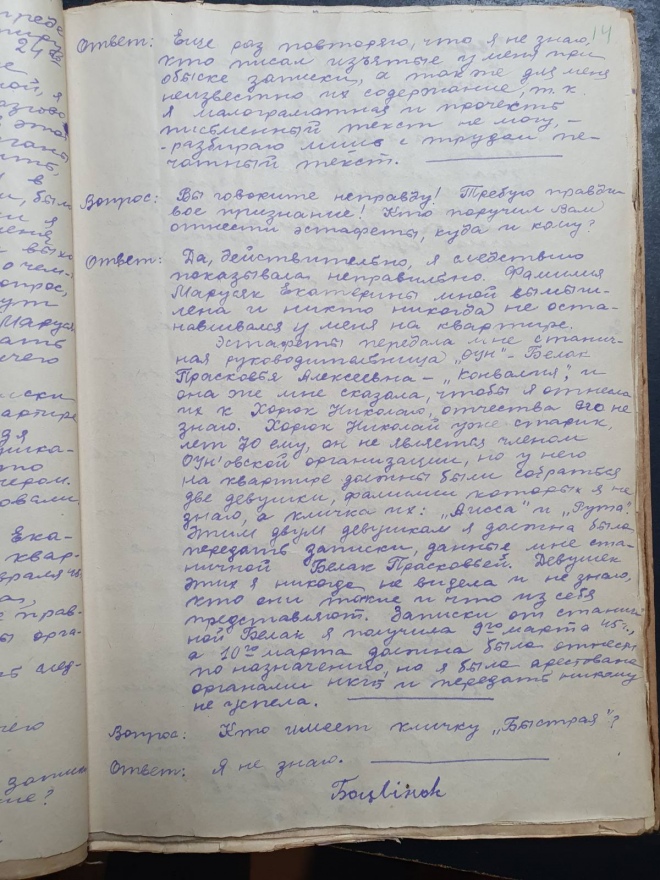 14
Ответ: Еще раз повторяю, что я не знаю,
кто писал изъятые у меня при
обыске записки, а также для меня
неизвестно их содержание, т.к.
я малограмотная и прочесть
письменный текст не могу, –
- разбираю лишь с трудом пе-
чатный текст.
Вопрос: Вы говорите неправду! Требую правди-
вое признание! Кто поручил Вам
отнести эстафеты, куда и кому?
Ответ: Да, действительно, я следствию
показывала неправильно. Фамилия
Марусяк Екатерины мной вымыш-
лена и никто никогда не оста-
навливался у меня на квартире.
Эстафеты передала мне станич-
ная руководительница „ОУН"- Белак
Прасковья Алексеевна – „Конвалия", и
она же мне сказала, чтобы я отнесла
их к Хорюк Николаю, отчества его не
знаю. Хорюк Николай уже старик,
лет 70 ему, он не является членом
ОУН'овской организации, но у него
на квартире должны были собраться
две девушки, фамилии которых я не
знаю, а клички их: „Лисса" и „Рута".
Этим двум девушкам я должна была
передать записки, данные мне ста-
ничной Белак Прасковьей. Девушек
этих я никогда не видела и не знаю,
кто они такие и что из себя
представляют. Записки от станич-
ной Белак я получила 9го марта 45 г.,
а 10го марта должна была отнести
по назначению, но я была арестована
органами НКГБ и передать никому
не успела.
Вопрос: Кто имеет кличку „Быстрая"?
Ответ: Я не знаю.